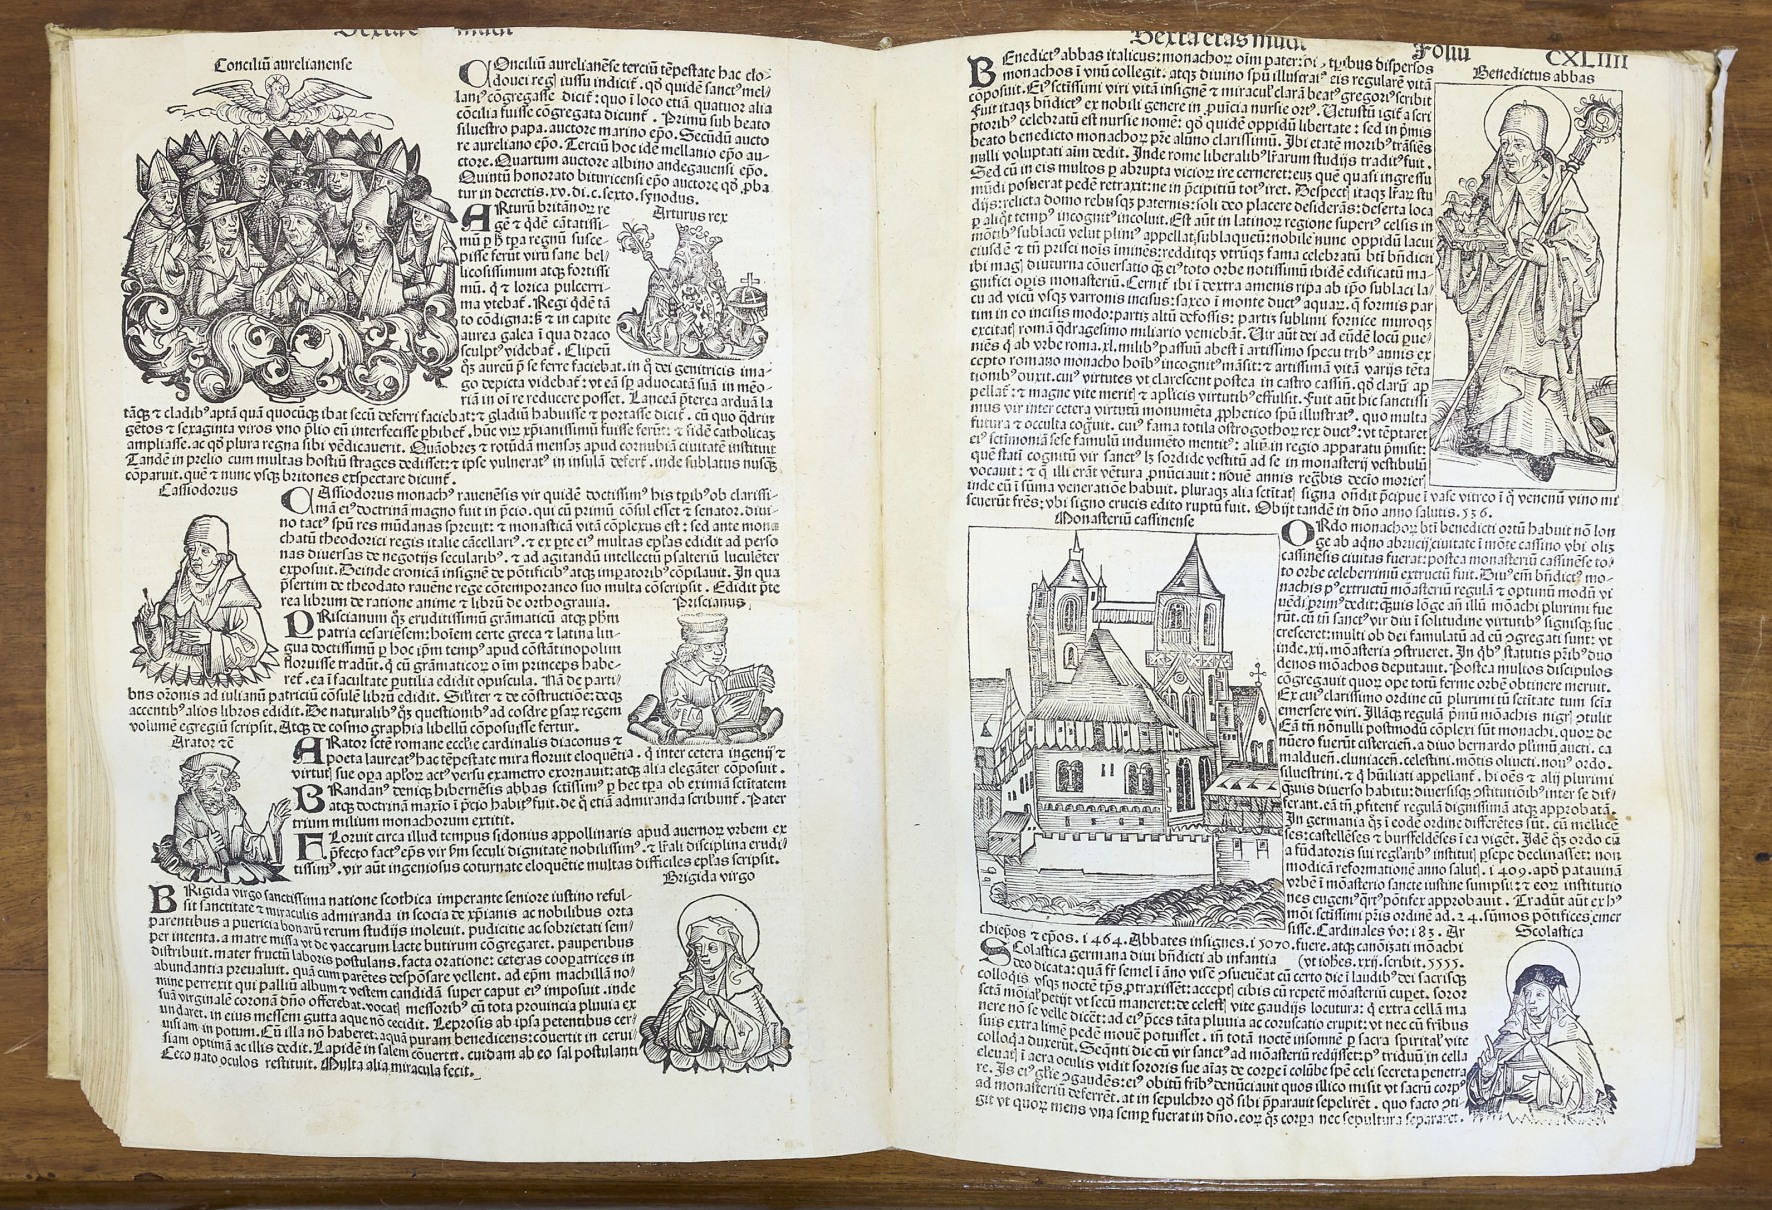 Sexta etas mundi Foliu CXLIIII
Conciliū aurelianense
COnciliū aurelianēse terciū tēpestate hac clo-
douei regꝭ iussu indicit̄. qō quidē sanctꝰ mel-
lanꝰ cōgregasse dicit̄: quo ī loco etiā quatuor alia
cōcilia fuisse cōgregata dicunt̄. Primū sub beato
siluestro papa. auctore marino epō. Secūdū aucto
re aureliano epō. Terciū hoc idē mellanio epō au-
ctore. Quartum auctore albino andegauensi epō.
Quintū honorato bituricensi epō auctore qō ꝓba
tur in decretis. xv. di. c. sexto. synodus.
Arturus rex
ARturū britānoꝝ re
gē ⁊ q̄dē cātatissi-
mū ꝑ h̄ tꝑa regnū susce-
pisse ferūt virū sane bel-
licosissimum atqꝫ fortissi
mū. q̄ ⁊ lorica pulcerri-
ma vtebat̄. Regi q̄dē tā
to cōdigna: ⁊ in capite
aurea galea ī qua draco
sculptꝰ videbat̄. Clipeū
qꝫ aureū ꝓ se ferre faciebat. in q̄ dei genitricis ima-
go depicta videbat̄: vt eā sꝑ aduocatā suā in mēo-
riā in oī re reducere posset. Lanceā p̄terea arduā la
tāqꝫ ⁊ cladibꝰ aptā quā quocūqꝫ ibat secū deferri faciebat: ⁊ gladiū habuisse ⁊ portasse dicit̄. cū quo q̄drin
gētos ⁊ sexaginta viros vno p̄lio eū interfecisse ꝑhibet̄. hūc vir xp̄ianissimū fuisse ferūt: ⁊ fidē catholicaꝫ
ampliasse. ac qō plura regna sibi vēdicauerit. Quāobrē ⁊ rotūdā mensaꝫ apud cornubiā ciuitatē instituit
Tandē in prelio cum multas hostiū strages dedisset: ⁊ ipse vulneratꝰ in insulā defert̄. inde sublatus nusq̄ꝫ
cōparuit. quē ⁊ nunc vsqꝫ britones exspectare dicunt̄.
Cassiodorus
CAssiodorus monachꝰ rauenēsis vir quidē doctissimꝰ his tꝑibꝰ ob clarissi-
mā eiꝰ doctrinā magno fuit in p̄cio. qui cū primū cōsul esset ⁊ senator. diui-
no tactꝰ spū res mūdanas spreuit: ⁊ monasticā vitā cōplexus est: sed ante mona
chatū theodorici regis italie cācellariꝰ. ⁊ ex ꝑte eiꝰ multas epl̄as edidit ad perso
nas diuersas de negotijs secularibꝰ. ⁊ ad agitandū intellectū psalteriū luculēter
exposuit. Deinde cronicā insignē de pōtificibꝰ atqꝫ imꝑatoribꝰ cōpilauit. In qua
p̄sertim de theodato rauēne rege cōtemporaneo suo multa cōscripsit. Edidit p̄te
rea librum de ratione anime ⁊ librū de orthograuia.
Priscianus
PRiscianum qꝫ eruditissimū grāmaticū atqꝫ phm̄
patria cesariēsem: hoīem certe greca ⁊ latina lin-
gua doctissimū ꝑ hoc ip̄m tempꝰ apud cōstātinopolim
floruisse tradūt. q̄ cū grāmaticoꝝ oīm princeps habe-
ret̄. ea ī facultate putilia edidit opuscula. Nā de parti-
bus orōnis ad iulianū patriciū cōsulē librū edidit. Sil̄iter ⁊ de cōstructiōe: deqꝫ
accentibꝰ alios libros edidit. De naturalibꝰ qꝫ questionibꝰ ad cosdre ꝑsaꝝ regem
volumē egregiū scripsit. Atqꝫ de cosmo graphia libellū cōposuisse fertur.
Arator ⁊c̄
ARator scte romane eccl̄ie cardinalis diaconus ⁊
poeta laureatꝰ hac tēpestate mira floruit eloquētia. q̄ inter cetera ingenij ⁊
virtutꝭ sue oꝑa apl̄oꝝ actꝰ versu exametro exornauit: atqꝫ alia elegāter cōposuit.
BRandanꝰ deniqꝫ hibernēsis abbas sctissimꝰ ꝑ hec tꝑa ob eximiā sctitatem
atqꝫ doctrinā maxīo ī p̄cio habitꝰ fuit. de q̄ etiā admiranda scribunt̄. Pater
trium milium monachorum extitit.
FLoruit circa illud tempus sidonius appollinaris apud auernoꝝ vrbem ex
p̄fecto factꝰ ep̄s vir ſm seculi dignitatē nobilissimꝰ. ⁊ lr̄ali disciplina erudi-
tissimꝰ. vir aūt ingeniosus coturnate eloquētie multas difficiles epl̄as scripsit.
Brigida virgo
BRigida virgo sanctissima natione scothica imperante seniore iustino reful-
sit sanctitate ⁊ miraculis admiranda in scocia de xp̄ianis ac nobilibus orta
parentibus a puericia bonarū rerum studijs inoleuit. pudicitie ac sobrietati sem-
per intenta. a matre missa vt de vaccarum lacte butirum cōgregaret. pauperibus
distribuit. mater fructū laboris postulans. facta oratione: ceteras cooꝑatrices in
abundantia preualuit. quā cum parētes despōsare vellent. ad ep̄m machillā no-
mine perrexit qui palliū album ⁊ vestem candidā super caput eiꝰ imposuit. inde
suā virginalē coronā dn̄o offerebat. vocatꝭ messoribꝰ cū tota prouincia pluuia ex
undaret. in eius messem gutta aque nō cecidit. Leprosis ab ipsa petentibus cer-
uisiam in potum. Cū illa nō haberet: aquā puram benedicens: cōuertit in cerui
siam optimā ac illis dedit. Lapidē in salem cōuertit. cuidam ab eo sal postulanti
Ceco nato oculos restituit. Multa alia miracula fecit.
Benedictus abbas
BEnedictꝰ abbas italicus: monachoꝝ oīm pater: hꝭ tꝑibus dispersos
monachos ī vnū collegit. atqꝫ diuino spū illustratꝰ eis regularē vitā
cōposuit. Eiꝰ sctissimi viri vitā insignē ⁊ miraculꝭ clarā beatꝰ gregoriꝰ scribit
Fuit itaqꝫ bn̄dictꝰ ex nobili genere in ꝓuincia nursie ortꝰ. Uetustū igit̄ a scri
ptoribꝰ celebratū est nursie nomē: qō quidē oppidū libertate: sed in p̄mis
beato benedicto monachoꝝ pr̄e alūno clarissimū. Ibi etatē moribꝰ trāsiēs
nulli voluptati aīm dedit. Inde rome liberalibꝰ lr̄arum studijs traditꝰ fuit.
Sed cū in eis multos ꝑ abrupta vicioꝝ ire cerneret: euꝫ quē quasi ingressu
mūdi posuerat pedē retraxit: ne in p̄cipitiū totꝰ iret. Despectꝭ itaqꝫ lr̄aꝝ stu
dijs: relicta domo rebusqꝫ paternis: soli deo placere desiderās: deserta loca
ꝑ aliq̄t tempꝰ incognitꝰ incoluit. Est aūt in latinoꝝ regione superiꝰ celsis in
mōtibꝰ sublacū velut pliniꝰ appellat sublaqueū: nobile nunc oppidū lacui
eiusdē ⁊ tū prisci nois iminēs: redditqꝫ vtrūqꝫ fama celebratū bti bn̄dicti
ibi magꝭ diuturna cōuersatio q̄ꝫ eiꝰ toto orbe notissimū ibidē edificatū ma-
gnifici oꝑis monasteriū. Cernit̄ ibi ī dextra amenis ripa ab ip̄o sublaci la-
cu ad vicū vsqꝫ varronis incisus: saxeo ī monte ductꝰ aquaꝝ. q̄ formis par
tim in eo incisis modo: partiꝫ altū defossis: partiꝫ sublimi fornice muroqꝫ
excitatꝭ romā q̄dragesimo miliario veniebāt. Uir aūt dei ad eūdē locū ꝑue-
niēs q̄ ab vrbe roma. xl. milibꝰ passuū abest ī artissimo specu tribꝰ annis ex
cepto romano monacho hoībꝰ incognitꝰ māsit: ⁊ artissimā vitā varijs tēta
tionibꝰ duxit. cuiꝰ virtutes vt clarescent postea in castro cassinū. qō clarū ap
pellat̄: ⁊ magne vite meritꝭ ⁊ apl̄icis virtutibꝰ effulsit. Fuit aūt hic sanctissi
mus vir inter cetera virtutū monumēta ꝓphetico spū illustratꝰ. quo multa
futura ⁊ occulta cognouit. cuiꝰ fama totila ostrogothoꝝ rex ductꝰ: vt tēptaret
eiꝰ sctimoniā sese famulū indumēto mentitꝰ: aliū in regio apparatu p̄misit:
quē stati cognitū vir sanctꝰ lꝫ sordide vestitū ad se in monasterij vestibulū
vocauit: ⁊ q̄ illi erāt vētura p̄nūciauit: nouē annis regn̄bis decīo morier̄
inde eū ī sūma veneratiōe habuit. pluraqꝫ alia sctitatꝭ signa on̄dit p̄cipue ī vase vitreo ī q̄ venenū vino mi
scuerūt fr̄es: vbi signo crucis edito ruptū fuit. Obijt tandē in dn̄o anno salutis. 536.
Monasteriū cassinense
ORdo monachoꝝ bti benedicti ortū habuit nō lon
ge ab aq̄no abrucij ciuitate ī mōte cassino vbi olīꝫ
cassinēsis ciuitas fuerat: postea monasteriū cassinēse to-
to orbe celeberrimū extructū fuit. Diuꝰ em̄ bn̄dictꝰ mo-
nachis pꝰ extructū mōasteriū regulā ⁊ optimū modū vi
uēdi primꝰ dedit: qꝫuis lōge an̄ illū mōachi plurimi fue
rūt. cū tn̄ sanctꝰ vir diu ī solitudine virtutibꝰ signisqꝫ suc
cresceret: multi ob dei famulatū ad eū ꝯgregati sunt: vt
inde. xij. mōasteria ꝯstrueret. In qꝰbꝰ statutis pr̄ibꝰ duo
denos mōachos deputauit. Postea multos discipulos
cōgregauit quoꝝ ope totū ferme orbē obtinere meruit.
Ex cuiꝰ clarissimo ordine cū plurimi tū sctitate tum scīa
emersere viri. Illāqꝫ regulā p̄mū mōachis nigrꝭ ꝯtulit
Eā tn̄ nōnulli postmodū cōplexi sūt monachi. quoꝝ de
nūero fuerūt cistercien̄. a diuo bernardo pl̄imū aucti. ca
malduen̄. cluniacen̄. celestini. mōtis oliueti. nouꝰ ordo.
siluestrini. ⁊ q̄ hūiliati appellant̄. hi oēs ⁊ alij plurimi
qꝫuis diuerso habitu: diuersisqꝫ ꝯstitutiōibꝰ inter se dif-
ferant. eā tn̄ ꝓfitent̄ regulā dignissimā atqꝫ approbatā.
In germania qꝫ ī eodē ordine differētes sūt. cū mellicē
ses: castellēses ⁊ burssfeldēses ī ea vigēt. Idē qꝫ ordo cū
a fūdatoris sui reglaribꝰ institutꝭ ꝑsepe declinasset: non
modicā reformationē anno salutꝭ. 1409. apd̄ patauinā
vrbē ī mōasterio sancte iustine sumpsit: ⁊ eoꝝ institutio
nes eugeniꝰ qrtꝰ pōtifex approbauit. Tradūt aūt ex hꝰ
mōi sctissimi pr̄is ordine ad. 24. sūmos pōtifices emer
sisse. Cardinales vo: 183. Ar
chiep̄os ⁊ ep̄os. 1464. Abbates insignes. 15070. fuere. atqꝫ canōizati mōachi
(vt ioh̄es. xxij. scribit. 5555.
Scolastica
SColastica germana diui bn̄dicti ab infantia
deo dicata: quā fr̄ semel ī āno visē ꝯsueuēat cū certo die ī laudibꝰ dei sacrisqꝫ
colloqis vsqꝫ noctē tp̄s ꝓtraxissēt: acceptꝭ cibis cū repetē mōasteriū cuꝑet. soror
sctā mōialꝭ petijt vt secū maneret: de celestꝭ vite gaudijs locutura: q̄ extra cellā ma
nere nō se velle dicēt: ad eiꝰ p̄ces tāta pluuia ac coruscatio erupit: vt nec cū fr̄ibus
suis extra limē pedē mouē potuisset. in totā noctē insomnē ꝑ sacra spiritalꝭ vite
colloq̄a duxerūt. Seq̄nti die cū vir sanctꝰ ad mōasteriū redijsset: pꝰ triduū in cella
eleuatꝭ ī aera oculis vidit sororis sue aīaꝫ de corꝑe ī colūbe spē celi secreta penetra
re. Is eiꝰ gl̄ie ꝯgaudēs: eiꝰ obitū fr̄ibꝰ denūciauit quos illico misit vt sacrū corpꝰ
ad monasteriū deferrēt. at in sepulchro qō sibi p̄parauit sepelirēt. quo facto ꝯti
git vt quoꝝ mens vna semꝑ fuerat in dn̄o. eoꝝ qꝫ corꝑa nec sepultura separaret.